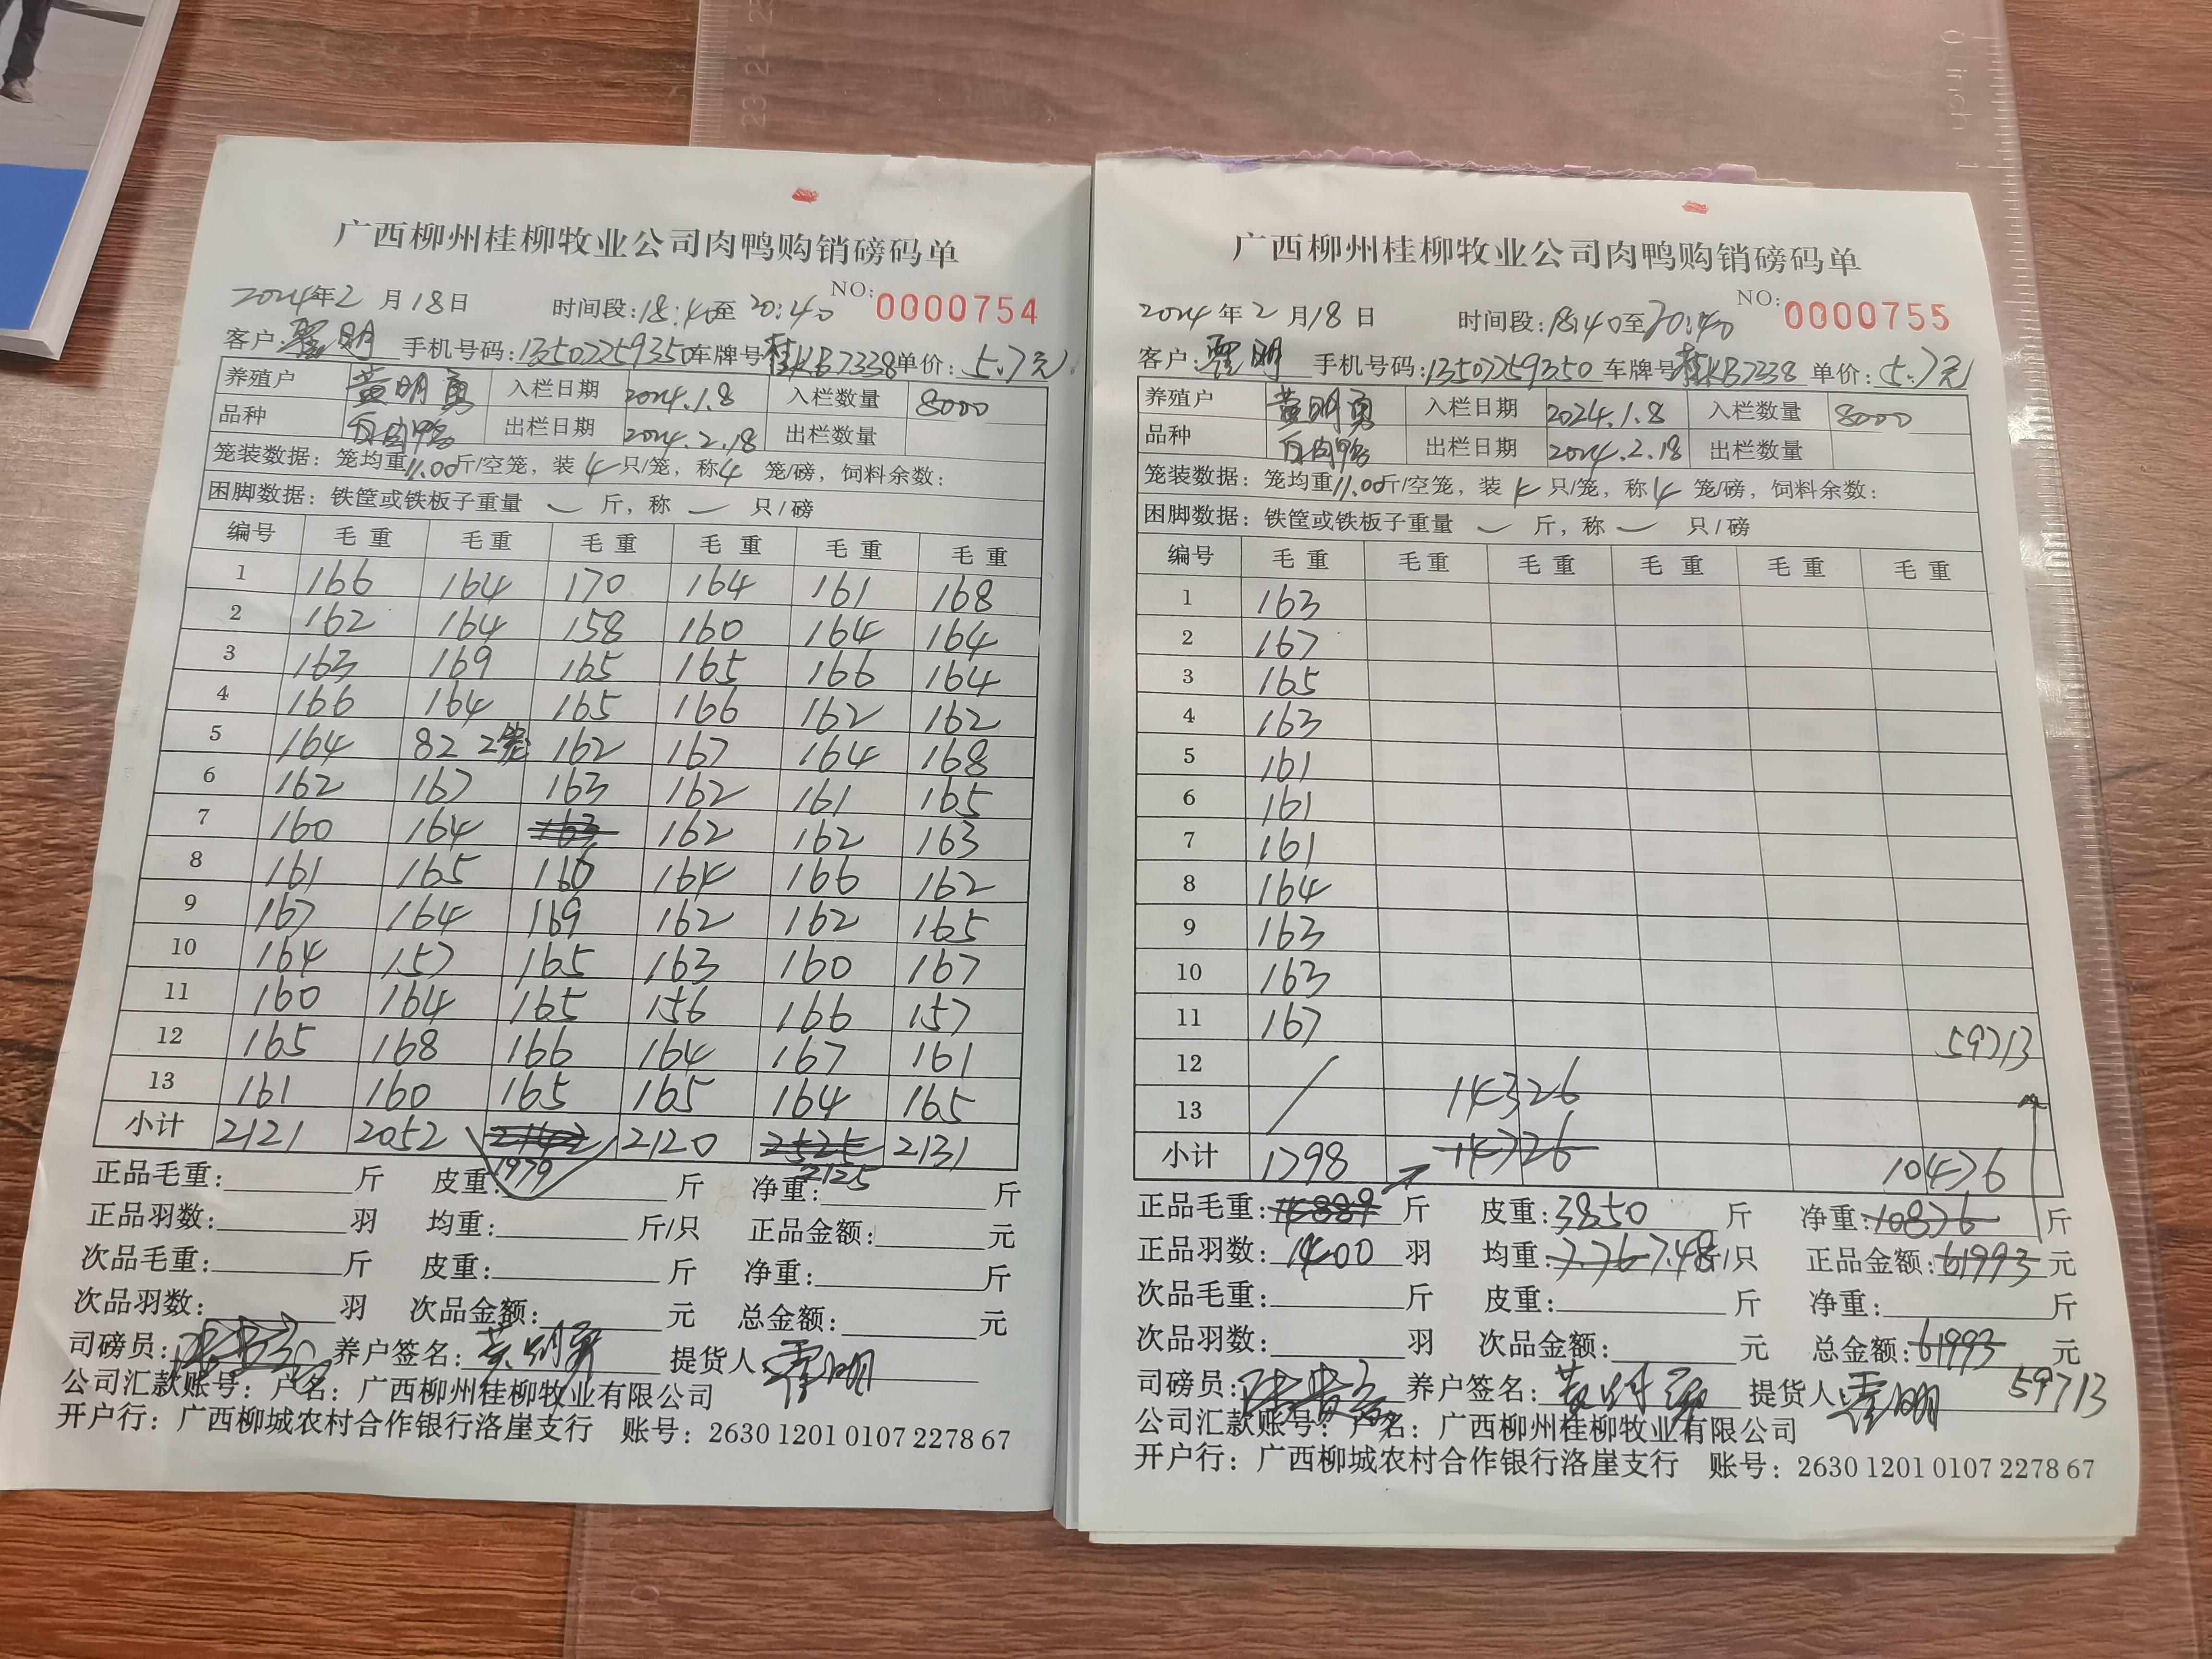 广西柳州桂柳牧业公司肉鸭购销磅码单
NO: 0000754
2024年2月18日 时间段:18:40至20:40
客户: 明 手机号码:13507259350 车牌号 桂KB7338 单价:5.7元
养殖户 黄明勇 入栏日期 2024.1.8 入栏数量 8000
品种 白肉鸭 出栏日期 2024.2.18 出栏数量
笼装数据:笼均重11.00斤/空笼,装4只/笼,称4笼/磅,饲料余数:
困脚数据:铁筐或铁板子重量 — 斤,称 — 只/磅
编号 毛重 毛重 毛重 毛重 毛重 毛重
1 166 164 170 164 161 168
2 162 164 158 160 164 164
3 163 169 165 165 166 164
4 166 164 165 166 162 162
5 164 82 2笼 162 167 164 168
6 162 167 163 162 161 165
7 160 164 163 162 162 163
8 161 165 166 164 166 162
9 167 164 169 162 162 165
10 164 157 165 163 160 167
11 160 164 165 156 166 157
12 165 168 166 164 167 161
13 161 160 165 165 164 165
小计 2121 2052 2142 2120 2525 2131
1979 2125
正品毛重: 斤 皮重: 斤 净重: 斤
正品羽数: 羽 均重: 斤/只 正品金额: 元
次品毛重: 斤 皮重: 斤 净重: 斤
次品羽数: 羽 次品金额: 元 总金额: 元
司磅员: 养户签名:黄明勇 提货人: 明
公司汇款账号:户名:广西柳州桂柳牧业有限公司
开户行:广西柳城农村合作银行洛崖支行 账号:2630 1201 0107 2278 67
广西柳州桂柳牧业公司肉鸭购销磅码单
NO: 0000755
2024年2月18日 时间段:18:40至20:40
客户: 明 手机号码:13507259350 车牌号 桂KB7338 单价:5.7元
养殖户 黄明勇 入栏日期 2024.1.8 入栏数量 8000
品种 白肉鸭 出栏日期 2024.2.18 出栏数量
笼装数据:笼均重11.00斤/空笼,装4只/笼,称4笼/磅,饲料余数:
困脚数据:铁筐或铁板子重量 — 斤,称 — 只/磅
编号 毛重 毛重 毛重 毛重 毛重 毛重
1 163
2 167
3 165
4 163
5 161
6 161
7 161
8 164
9 163
10 163
11 167 59713
12 / 14326
13
小计 1798 14326 10476
正品毛重:14889斤 皮重:3850斤 净重:10876斤
正品羽数:1400羽 均重:7.76 7.48斤/只 正品金额:61993元
次品毛重: 斤 皮重: 斤 净重: 斤
次品羽数: 羽 次品金额: 元 总金额:61993元
司磅员: 养户签名:黄明勇 提货人: 明 59713
公司汇款账号:户名:广西柳州桂柳牧业有限公司
开户行:广西柳城农村合作银行洛崖支行 账号:2630 1201 0107 2278 67
0 inch 1